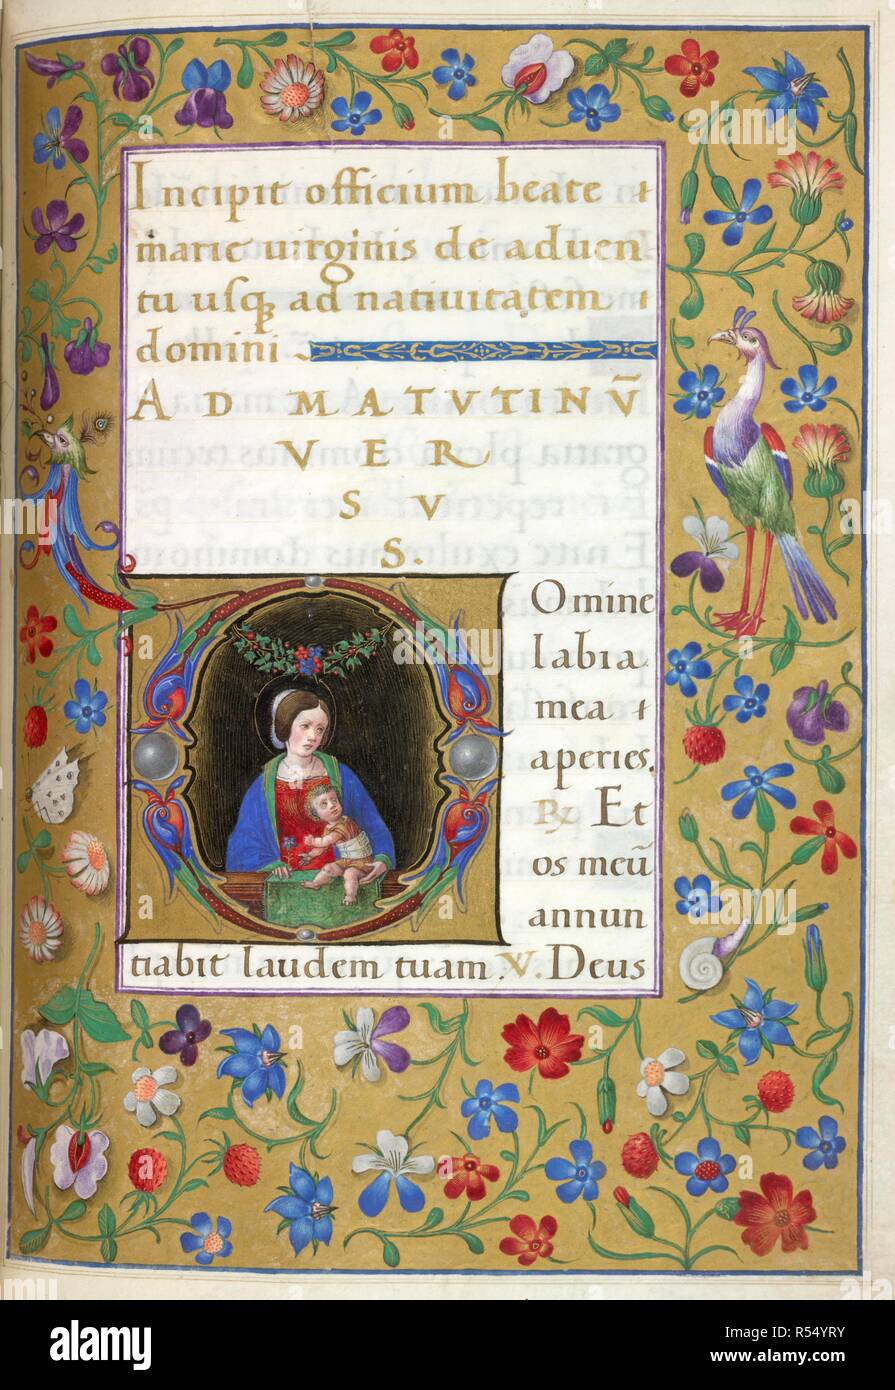 Incipit officium beate +
marie uirginis de aduen
tu usq; ad natiuitatem +
domini
AD MATVTINV̄
VER
SV
S.
Omine
labia
mea +
aperies.
R Et
os meū
annun
tiabit laudem tuam V. Deus
alamy
Image ID: R54YRY
www.alamy.com